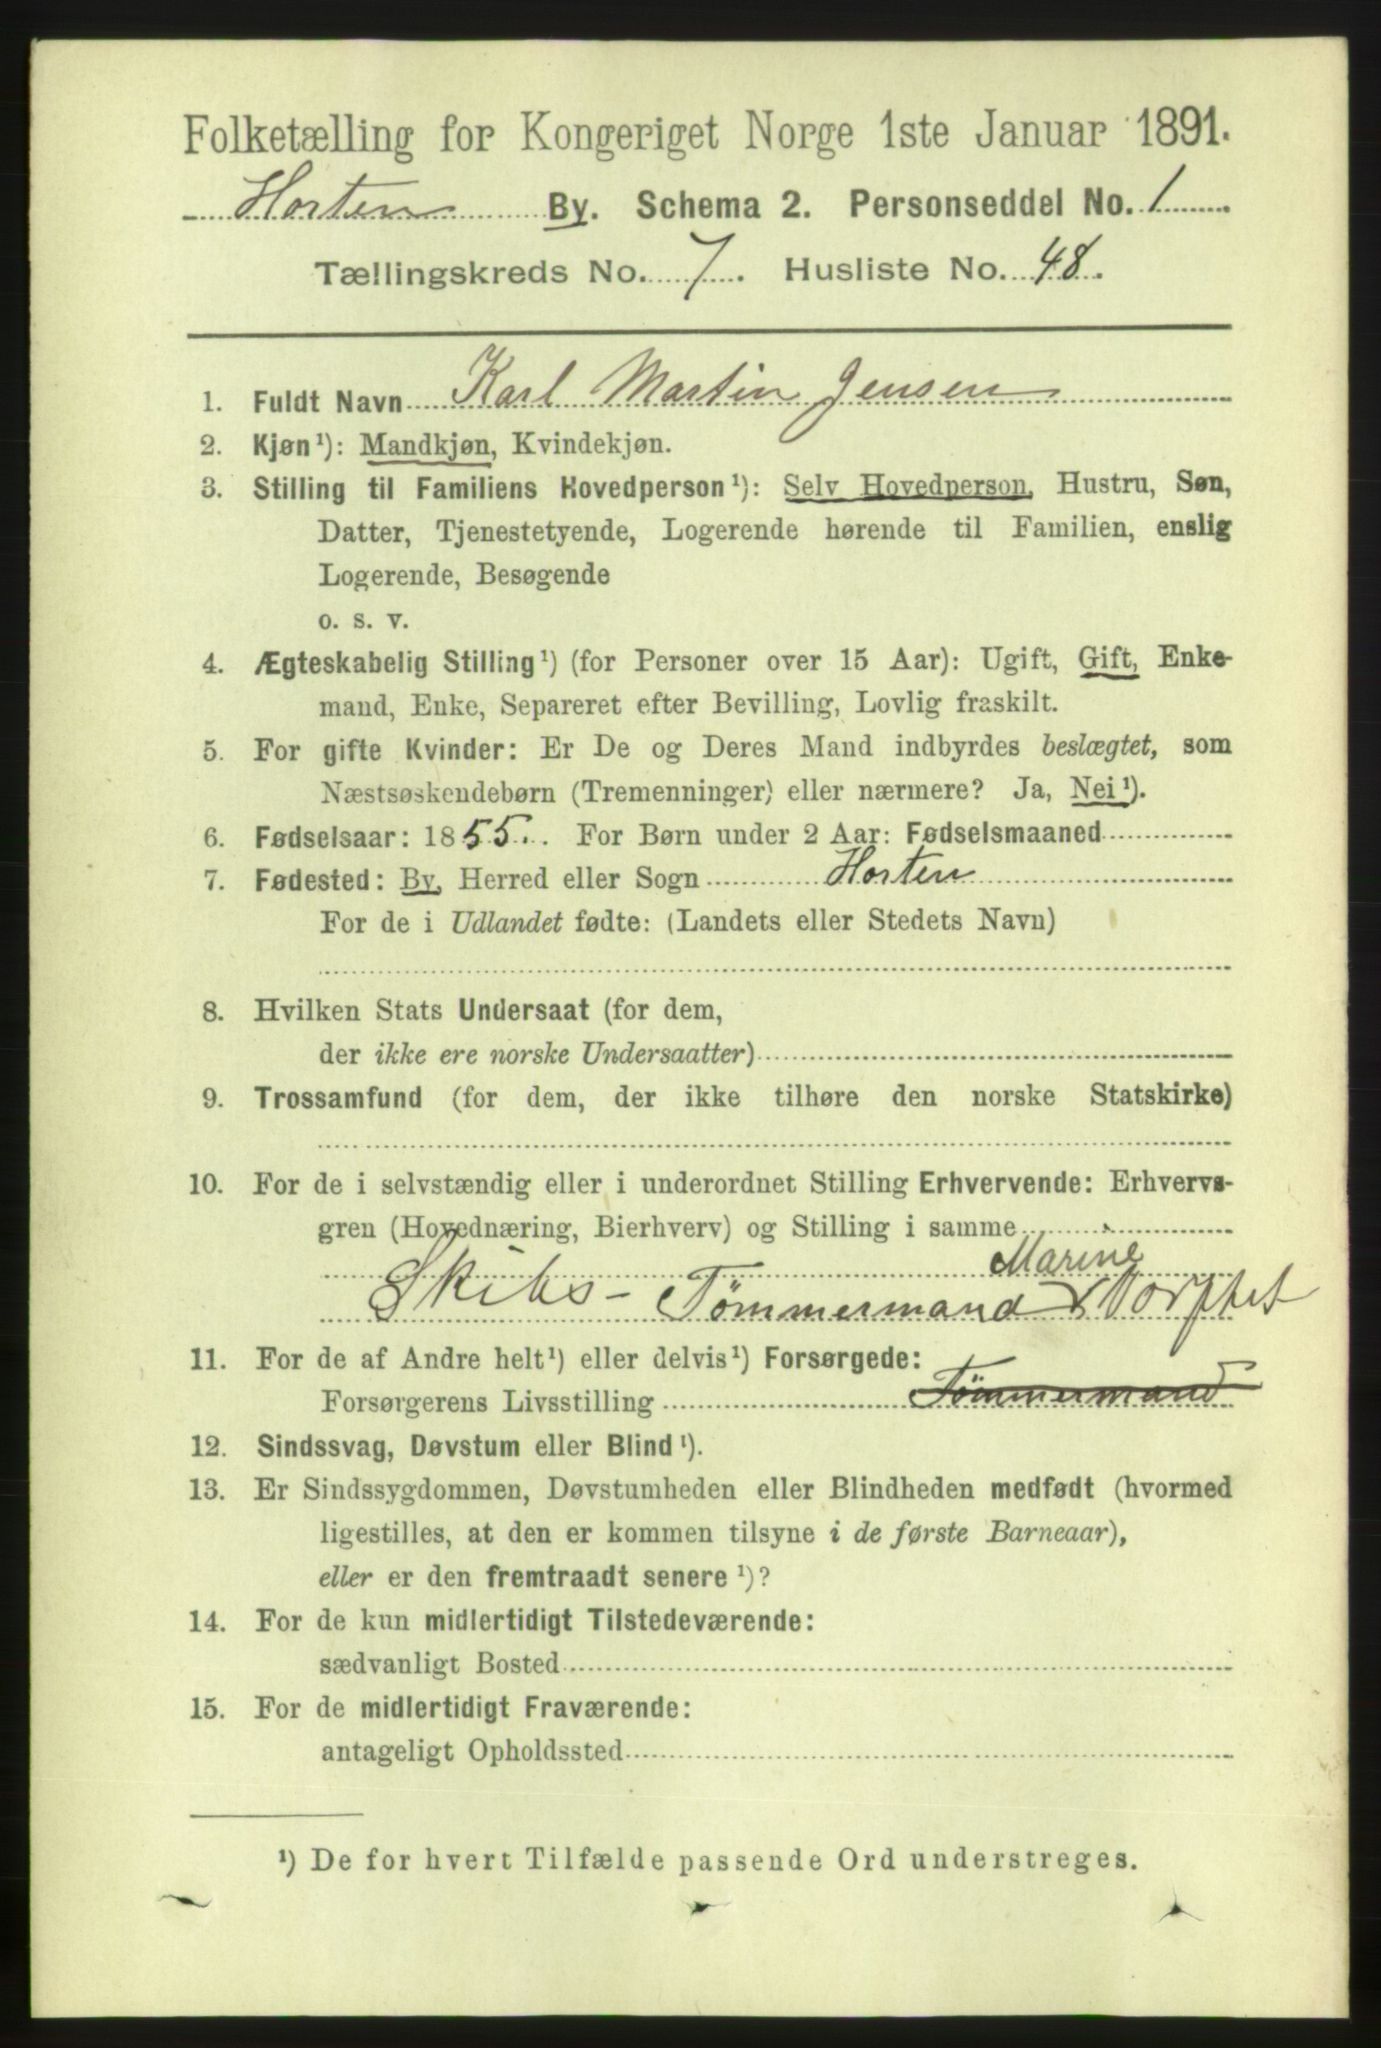 Folketælling for Kongeriget Norge 1ste Januar 1891.
Horten By. Schema 2. Personseddel No. 1
Tællingskreds No. 7. Husliste No. 48.
1. Fuldt Navn Karl Martin Jensen
2. Kjøn¹): Mandkjøn, Kvindekjøn.
3. Stilling til Familiens Hovedperson¹): Selv Hovedperson, Hustru, Søn,
Datter, Tjenestetyende, Logerende hørende til Familien, enslig
Logerende, Besøgende
o. s. v.
4. Ægteskabelig Stilling¹) (for Personer over 15 Aar): Ugift, Gift, Enke-
mand, Enke, Separeret efter Bevilling, Lovlig fraskilt.
5. For gifte Kvinder: Er De og Deres Mand indbyrdes beslægtet, som
Næstsøskendebørn (Tremenninger) eller nærmere? Ja, Nei¹).
6. Fødselsaar: 1855. For Børn under 2 Aar: Fødselsmaaned
7. Fødested: By, Herred eller Sogn Horten
For de i Udlandet fødte: (Landets eller Stedets Navn)
8. Hvilken Stats Undersaat (for dem,
der ikke ere norske Undersaatter)
9. Trossamfund (for dem, der ikke tilhøre den norske Statskirke)
10. For de i selvstændig eller i underordnet Stilling Erhvervende: Erhvervs-
gren (Hovednæring, Bierhverv) og Stilling i samme
Marine
Skibs-Tømmermand
11. For de af Andre helt¹) eller delvis¹) Forsørgede:
Forsørgerens Livsstilling Tømmermand
12. Sindssvag, Døvstum eller Blind¹).
13. Er Sindssygdommen, Døvstumheden eller Blindheden medfødt (hvormed
ligestilles, at den er kommen tilsyne i de første Barneaar),
eller er den fremtraadt senere¹)?
14. For de kun midlertidigt Tilstedeværende:
sædvanligt Bosted
15. For de midlertidigt Fraværende:
antageligt Opholdssted
¹) De for hvert Tilfælde passende Ord understreges.